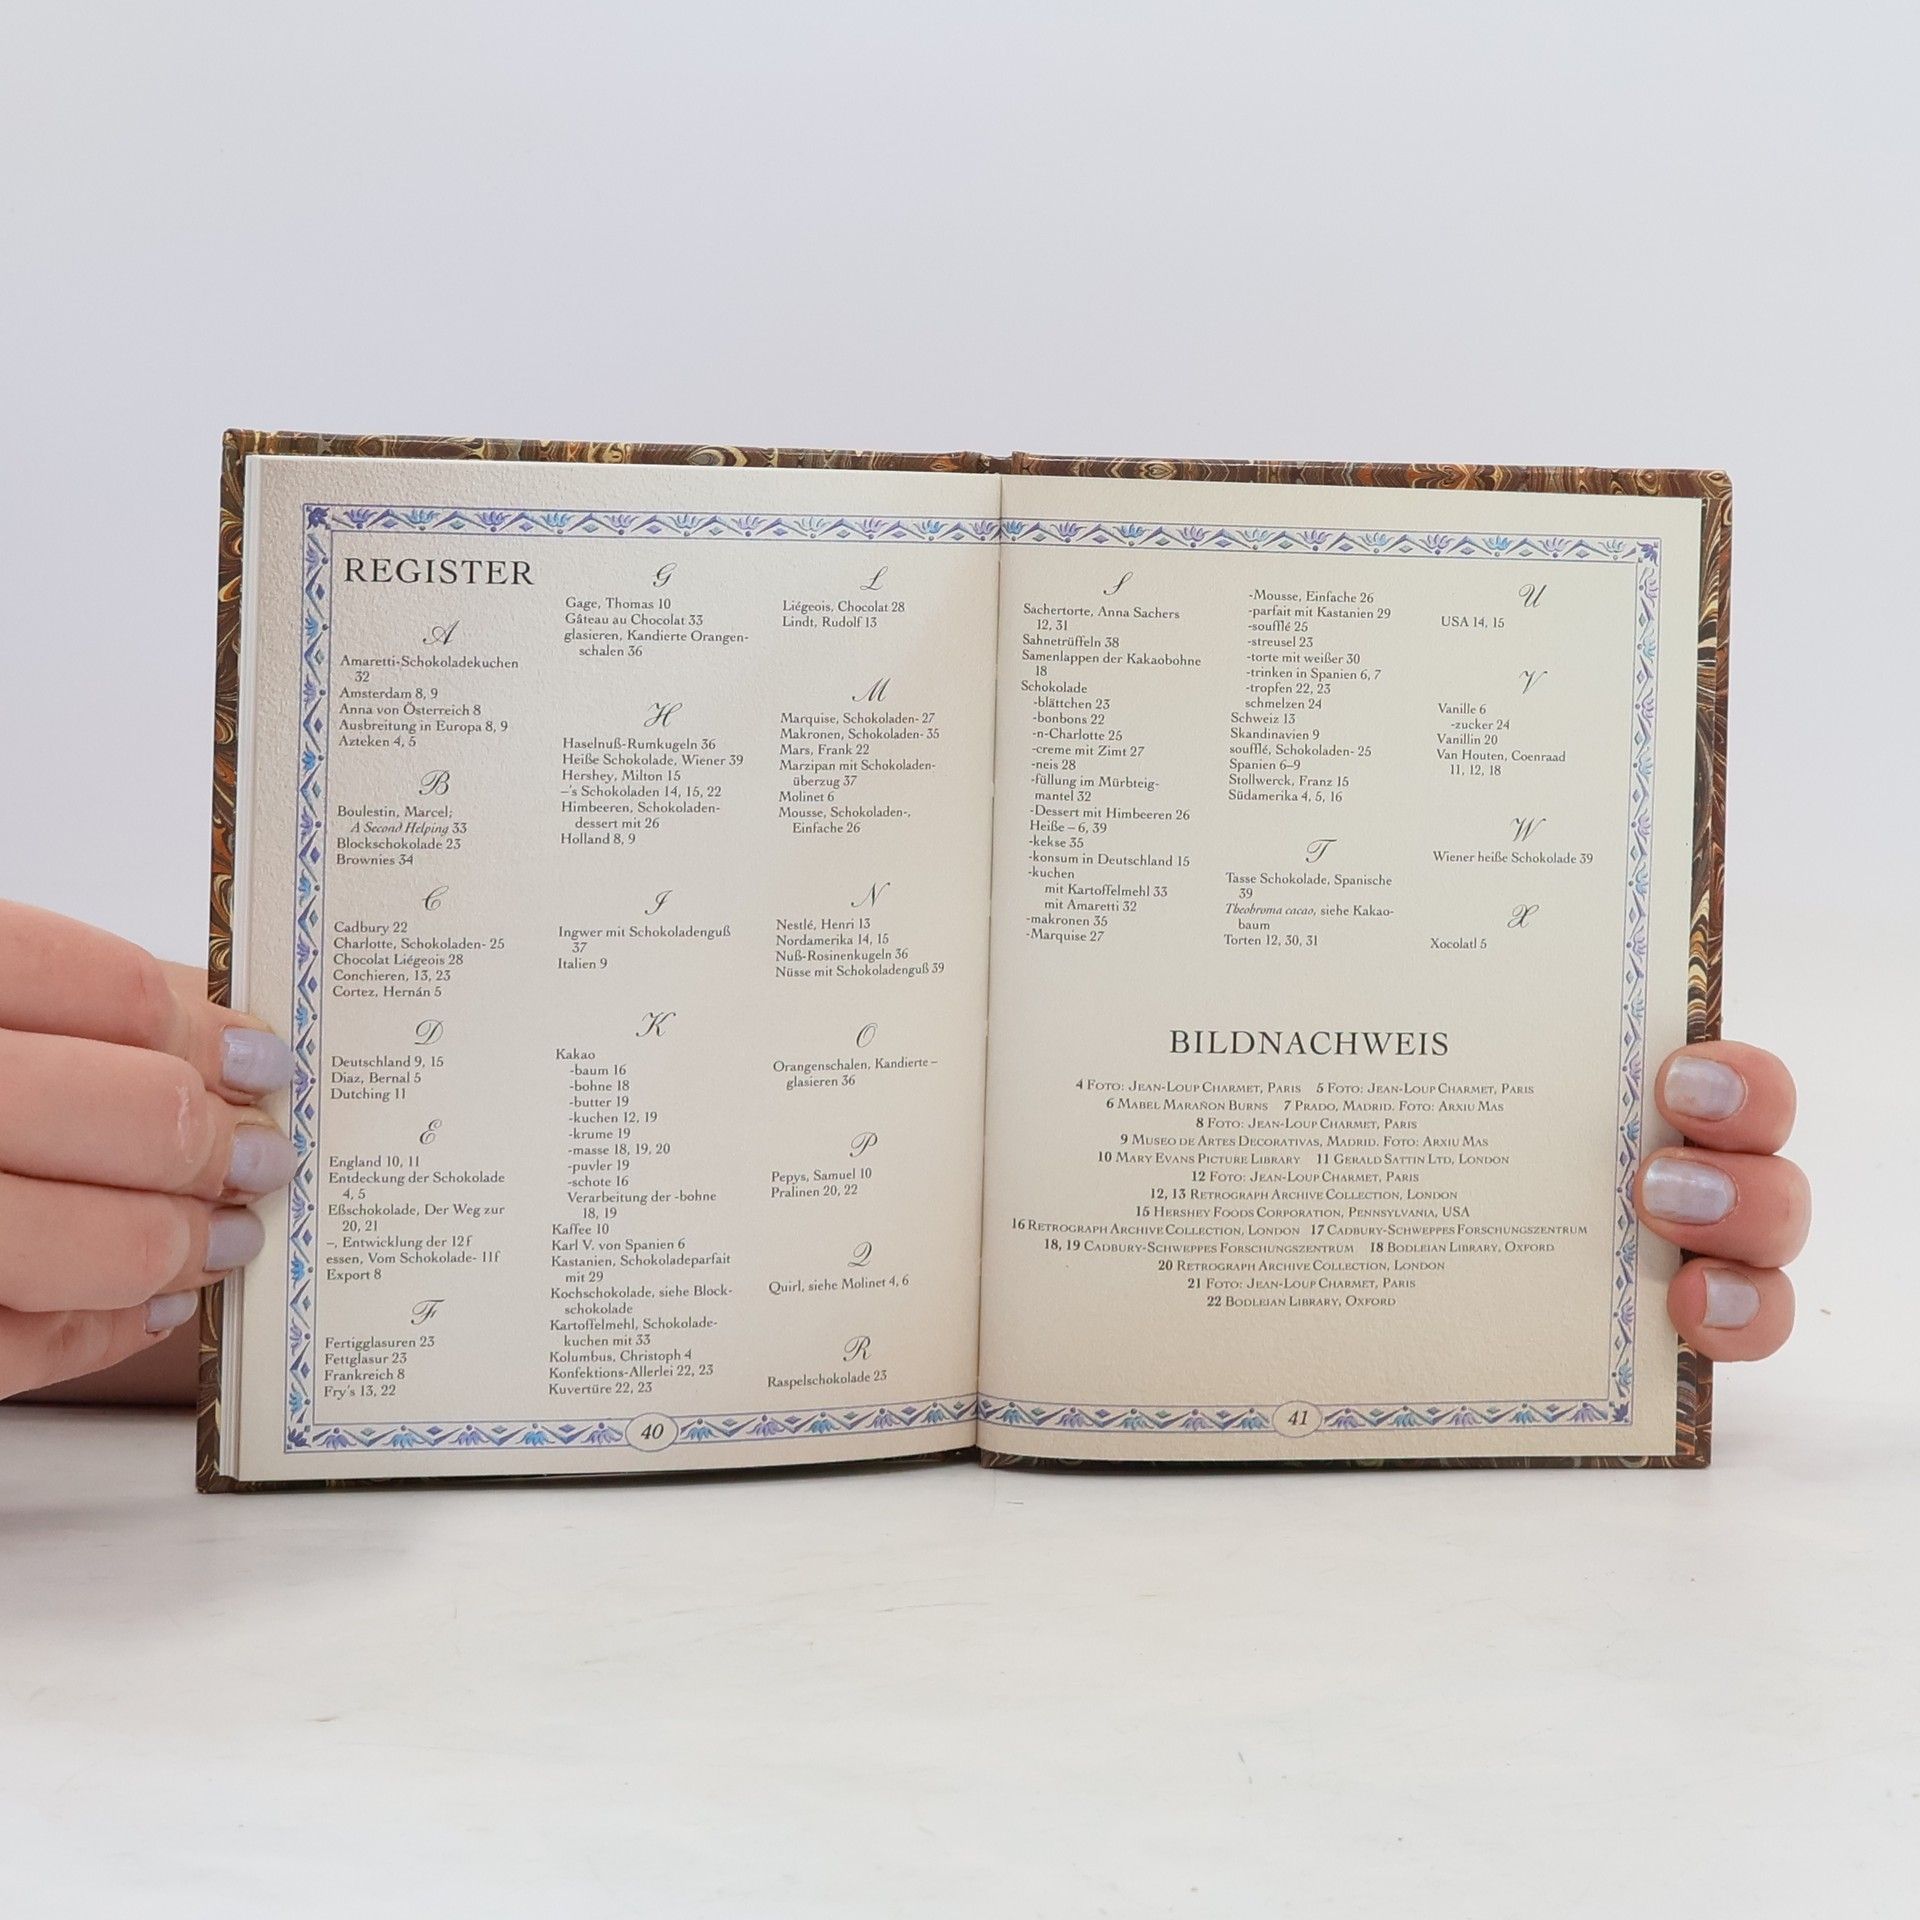 REGISTER
A
Amaretti-Schokoladekuchen
32
Amsterdam 8, 9
Anna von Österreich 8
Ausbreitung in Europa 8, 9
Azteken 4, 5
B
Boulestin, Marcel;
A Second Helping 33
Blockschokolade 23
Brownies 34
C
Cadbury 22
Charlotte, Schokoladen- 25
Chocolat Liégeois 28
Conchieren, 13, 23
Cortez, Hernán 5
D
Deutschland 9, 15
Diaz, Bernal 5
Dutching 11
E
England 10, 11
Entdeckung der Schokolade
4, 5
Eßschokolade, Der Weg zur
20, 21
–, Entwicklung der 12f
essen, Vom Schokolade- 11f
Export 8
F
Fertigglasuren 23
Fettglasur 23
Frankreich 8
Fry's 13, 22
G
Gage, Thomas 10
Gâteau au Chocolat 33
glasieren, Kandierte Orangen-
schalen 36
H
Haselnuß-Rumkugeln 36
Heiße Schokolade, Wiener 39
Hershey, Milton 15
–'s Schokoladen 14, 15, 22
Himbeeren, Schokoladen-
dessert mit 26
Holland 8, 9
I
Ingwer mit Schokoladenguß
37
Italien 9
K
Kakao
-baum 16
-bohne 18
-butter 19
-kuchen 12, 19
-krume 19
-masse 18, 19, 20
-puvler 19
-schote 16
Verarbeitung der -bohne
18, 19
Kaffee 10
Karl V. von Spanien 6
Kastanien, Schokoladeparfait
mit 29
Kochschokolade, siehe Block-
schokolade
Kartoffelmehl, Schokolade-
kuchen mit 33
Kolumbus, Christoph 4
Konfektions-Allerlei 22, 23
Kuvertüre 22, 23
L
Liégeois, Chocolat 28
Lindt, Rudolf 13
M
Marquise, Schokoladen- 27
Makronen, Schokoladen- 35
Mars, Frank 22
Marzipan mit Schokoladen-
überzug 37
Molinet 6
Mousse, Schokoladen-,
Einfache 26
N
Nestlé, Henri 13
Nordamerika 14, 15
Nuß-Rosinenkugeln 36
Nüsse mit Schokoladenguß 39
O
Orangenschalen, Kandierte –
glasieren 36
P
Pepys, Samuel 10
Pralinen 20, 22
Q
Quirl, siehe Molinet 4, 6
R
Raspelschokolade 23
40
S
Sachertorte, Anna Sachers
12, 31
Sahnetrüffeln 38
Samenlappen der Kakaobohne
18
Schokolade
-blättchen 23
-bonbons 22
-n-Charlotte 25
-creme mit Zimt 27
-neis 28
-füllung im Mürbteig-
mantel 32
-Dessert mit Himbeeren 26
Heiße – 6, 39
-kekse 35
-konsum in Deutschland 15
-kuchen
mit Kartoffelmehl 33
mit Amaretti 32
-makronen 35
-Marquise 27
-Mousse, Einfache 26
-parfait mit Kastanien 29
-soufflé 25
-streusel 23
-torte mit weißer 30
-trinken in Spanien 6, 7
-tropfen 22, 23
schmelzen 24
Schweiz 13
Skandinavien 9
soufflé, Schokoladen- 25
Spanien 6–9
Stollwerck, Franz 15
Südamerika 4, 5, 16
T
Tasse Schokolade, Spanische
39
Theobroma cacao, siehe Kakao-
baum
Torten 12, 30, 31
U
USA 14, 15
V
Vanille 6
-zucker 24
Vanillin 20
Van Houten, Coenraad
11, 12, 18
W
Wiener heiße Schokolade 39
X
Xocolatl 5
BILDNACHWEIS
4 FOTO: JEAN-LOUP CHARMET, PARIS 5 FOTO: JEAN-LOUP CHARMET, PARIS
6 MABEL MARAÑON BURNS 7 PRADO, MADRID. FOTO: ARXIU MAS
8 FOTO: JEAN-LOUP CHARMET, PARIS
9 MUSEO DE ARTES DECORATIVAS, MADRID. FOTO: ARXIU MAS
10 MARY EVANS PICTURE LIBRARY 11 GERALD SATTIN LTD, LONDON
12 FOTO: JEAN-LOUP CHARMET, PARIS
12, 13 RETROGRAPH ARCHIVE COLLECTION, LONDON
15 HERSHEY FOODS CORPORATION, PENNSYLVANIA, USA
16 RETROGRAPH ARCHIVE COLLECTION, LONDON 17 CADBURY-SCHWEPPES FORSCHUNGSZENTRUM
18, 19 CADBURY-SCHWEPPES FORSCHUNGSZENTRUM 18 BODLEIAN LIBRARY, OXFORD
20 RETROGRAPH ARCHIVE COLLECTION, LONDON
21 FOTO: JEAN-LOUP CHARMET, PARIS
22 BODLEIAN LIBRARY, OXFORD
41